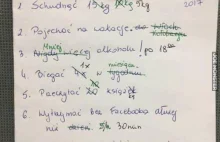 2017
1. Schudnąć 15kg 10kg 5kg
2. Pojechać na wakacje. do
Mniej
3. Nigdy więcej alkoholu! po 18:00
1x miesiącu
4. Biegać 4x w tygodniu
5. Przeczytać 20 książki
6. Wytrzymać bez Facebooka dłużej
niż dzień 5h 30min